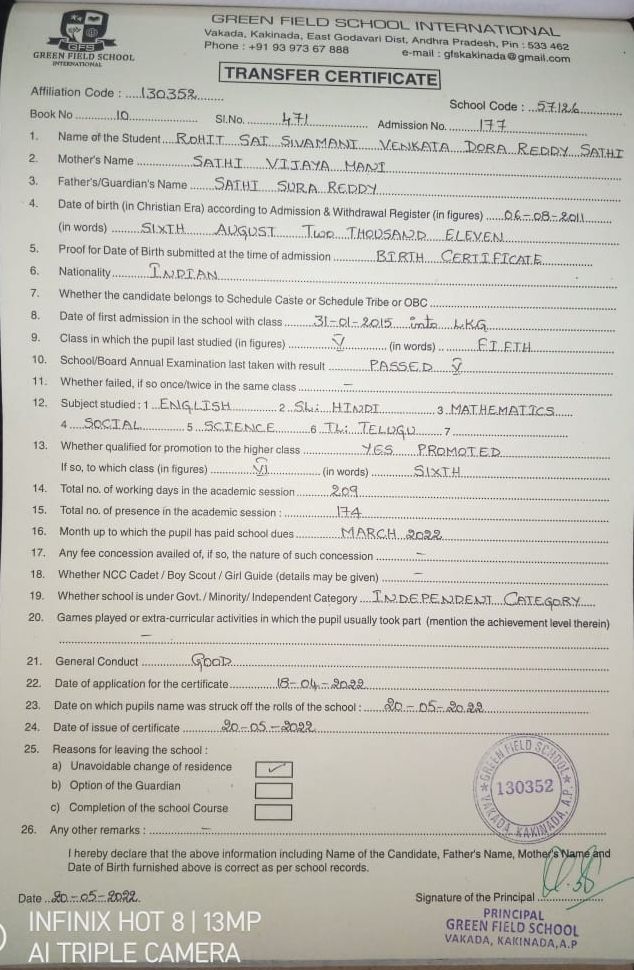 GREEN FIELD SCHOOL INTERNATIONAL
Vakada, Kakinada, East Godavari Dist, Andhra Pradesh, Pin : 533 462
Phone : +91 93 973 67 888 e-mail : gfskakinada@gmail.com
GFS
GREEN FIELD SCHOOL
INTERNATIONAL
TRANSFER CERTIFICATE
Affiliation Code : 130352 School Code : 57126
Book No 10 Sl.No. 471 Admission No. 177
1. Name of the Student ROHIT SAI SIVAMANI VENKATA DORA REDDY SATHI
2. Mother's Name SATHI VIJAYA MANI
3. Father's/Guardian's Name SATHI SURA REDDY
4. Date of birth (in Christian Era) according to Admission & Withdrawal Register (in figures) 06-08-2011
(in words) SIXTH AUGUST TWO THOUSAND ELEVEN
5. Proof for Date of Birth submitted at the time of admission BIRTH CERTIFICATE
6. Nationality INDIAN
7. Whether the candidate belongs to Schedule Caste or Schedule Tribe or OBC
8. Date of first admission in the school with class 31-01-2015 into LKG
9. Class in which the pupil last studied (in figures) V (in words) FIFTH
10. School/Board Annual Examination last taken with result PASSED V
11. Whether failed, if so once/twice in the same class –
12. Subject studied : 1 ENGLISH 2 SL: HINDI 3 MATHEMATICS
4 SOCIAL 5 SCIENCE 6 TL: TELUGU 7
13. Whether qualified for promotion to the higher class YES PROMOTED
If so, to which class (in figures) VI (in words) SIXTH
14. Total no. of working days in the academic session 209
15. Total no. of presence in the academic session : 174
16. Month up to which the pupil has paid school dues MARCH 2022
17. Any fee concession availed of, if so, the nature of such concession –
18. Whether NCC Cadet / Boy Scout / Girl Guide (details may be given) –
19. Whether school is under Govt. / Minority/ Independent Category INDEPENDENT CATEGORY
20. Games played or extra-curricular activities in which the pupil usually took part (mention the achievement level therein)
–
21. General Conduct GOOD
22. Date of application for the certificate 18-04-2022
23. Date on which pupils name was struck off the rolls of the school : 20-05-2022
24. Date of issue of certificate 20-05-2022
25. Reasons for leaving the school :
a) Unavoidable change of residence ✓
b) Option of the Guardian
c) Completion of the school Course
GREEN FIELD SCHOOL
130352
VAKADA, KAKINADA, A.P.
26. Any other remarks : –
I hereby declare that the above information including Name of the Candidate, Father's Name, Mother's Name and
Date of Birth furnished above is correct as per school records.
Date 20-05-2022. Signature of the Principal
PRINCIPAL
GREEN FIELD SCHOOL
VAKADA, KAKINADA,A.P
INFINIX HOT 8 | 13MP
AI TRIPLE CAMERA